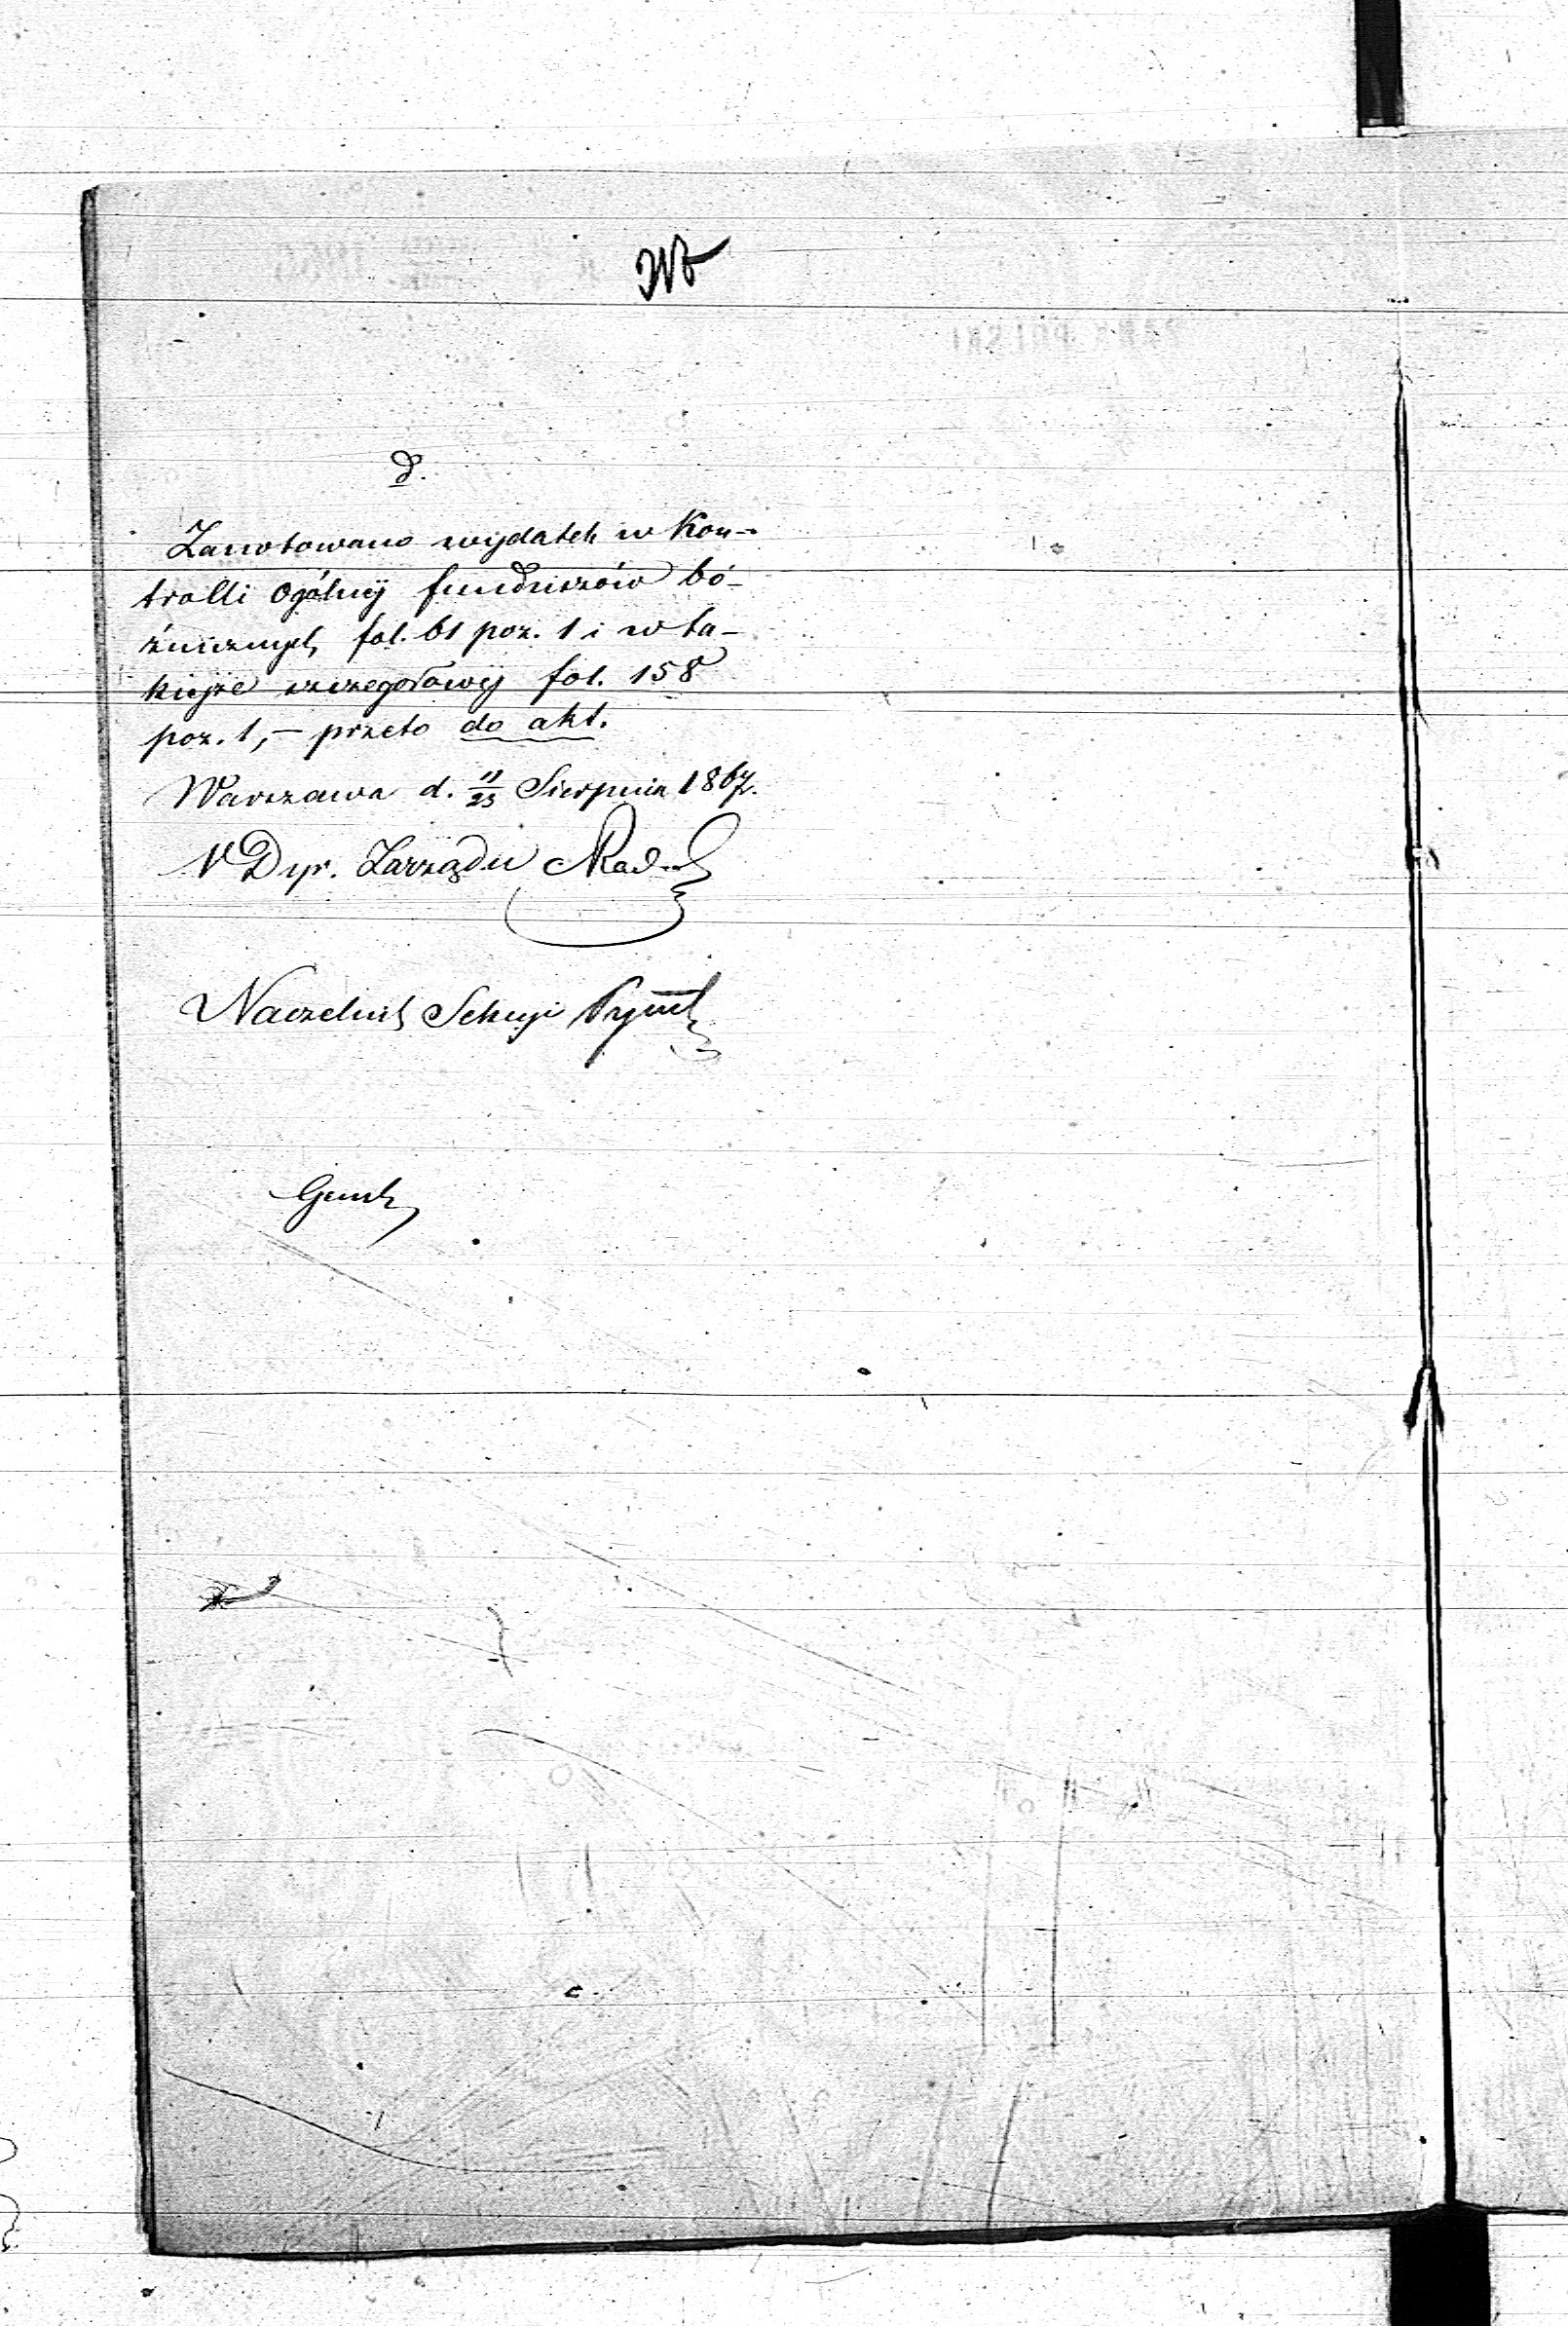 D.
Zanotowano wydatek w Kon-
trolli Ogólnéj funduszów bó-
źnicznych fol. 61 poz. 1 i w ta-
kiéjże szczegółowéj fol. 158
poz. 1, – przeto do akt.
Warszawa d. 11/23 Sierpnia 1867.
V Dyr. Zarządu
Naczelnik Sekcyi
BANK POLSKI